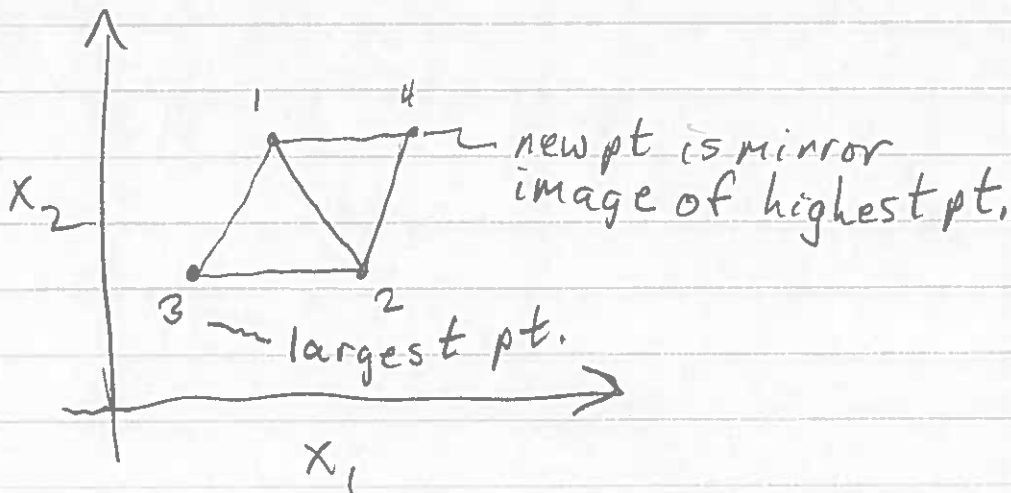 1
4
new pt is mirror
image of highest pt.
X2
3
2
largest pt.
X1